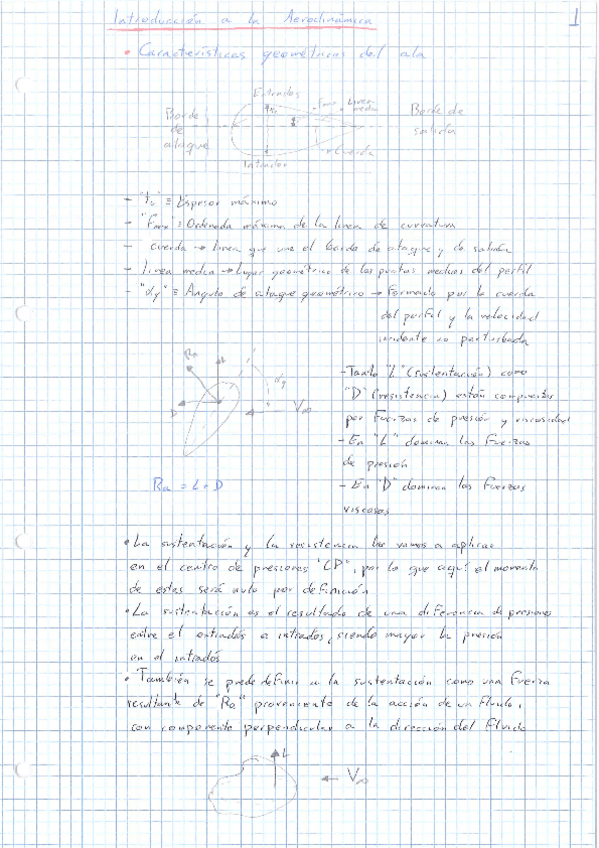 Introducción a la Aerodinámica
1
• Características geométricas del ala
Extrados
Borde de ataque
tₘ
Fmax
Linea media
Borde de salida
Cuerda
Intrados
- "tₘ" ≡ Espesor máximo
- "Fmax" ≡ Ordenada máxima de la linea de curvatura
- cuerda → linea que une el borde de ataque y de salida
- linea media → Lugar geométrico de los puntos medios del perfil
- "αg" ≡ Angulo de ataque geométrico → Formado por la cuerda
del perfil y la velocidad
incidente no perturbada
Ra
L
αg
D
V∞
Ra = L+D
- Tanto "L" (sustentación) como
"D" (resistencia) están compuestas
por Fuerzas de presión y viscosidad
- En "L" dominan las Fuerzas
de presión
- En "D" dominan las Fuerzas
viscosas
• La sustentación y la resistencia las vamos a aplicar
en el centro de presiones "CP", por lo que aquí el momento
de estas será nulo por definición
• La sustentación es el resultado de una diferencia de presiones
entre el extradós e intradós, siendo mayor la presión
en el intradós
• También se puede definir a la sustentación como una Fuerza
resultante de "Ra" proveniente de la acción de un Fluido,
con componente perpendicular a la dirección del Fluido
L
V∞